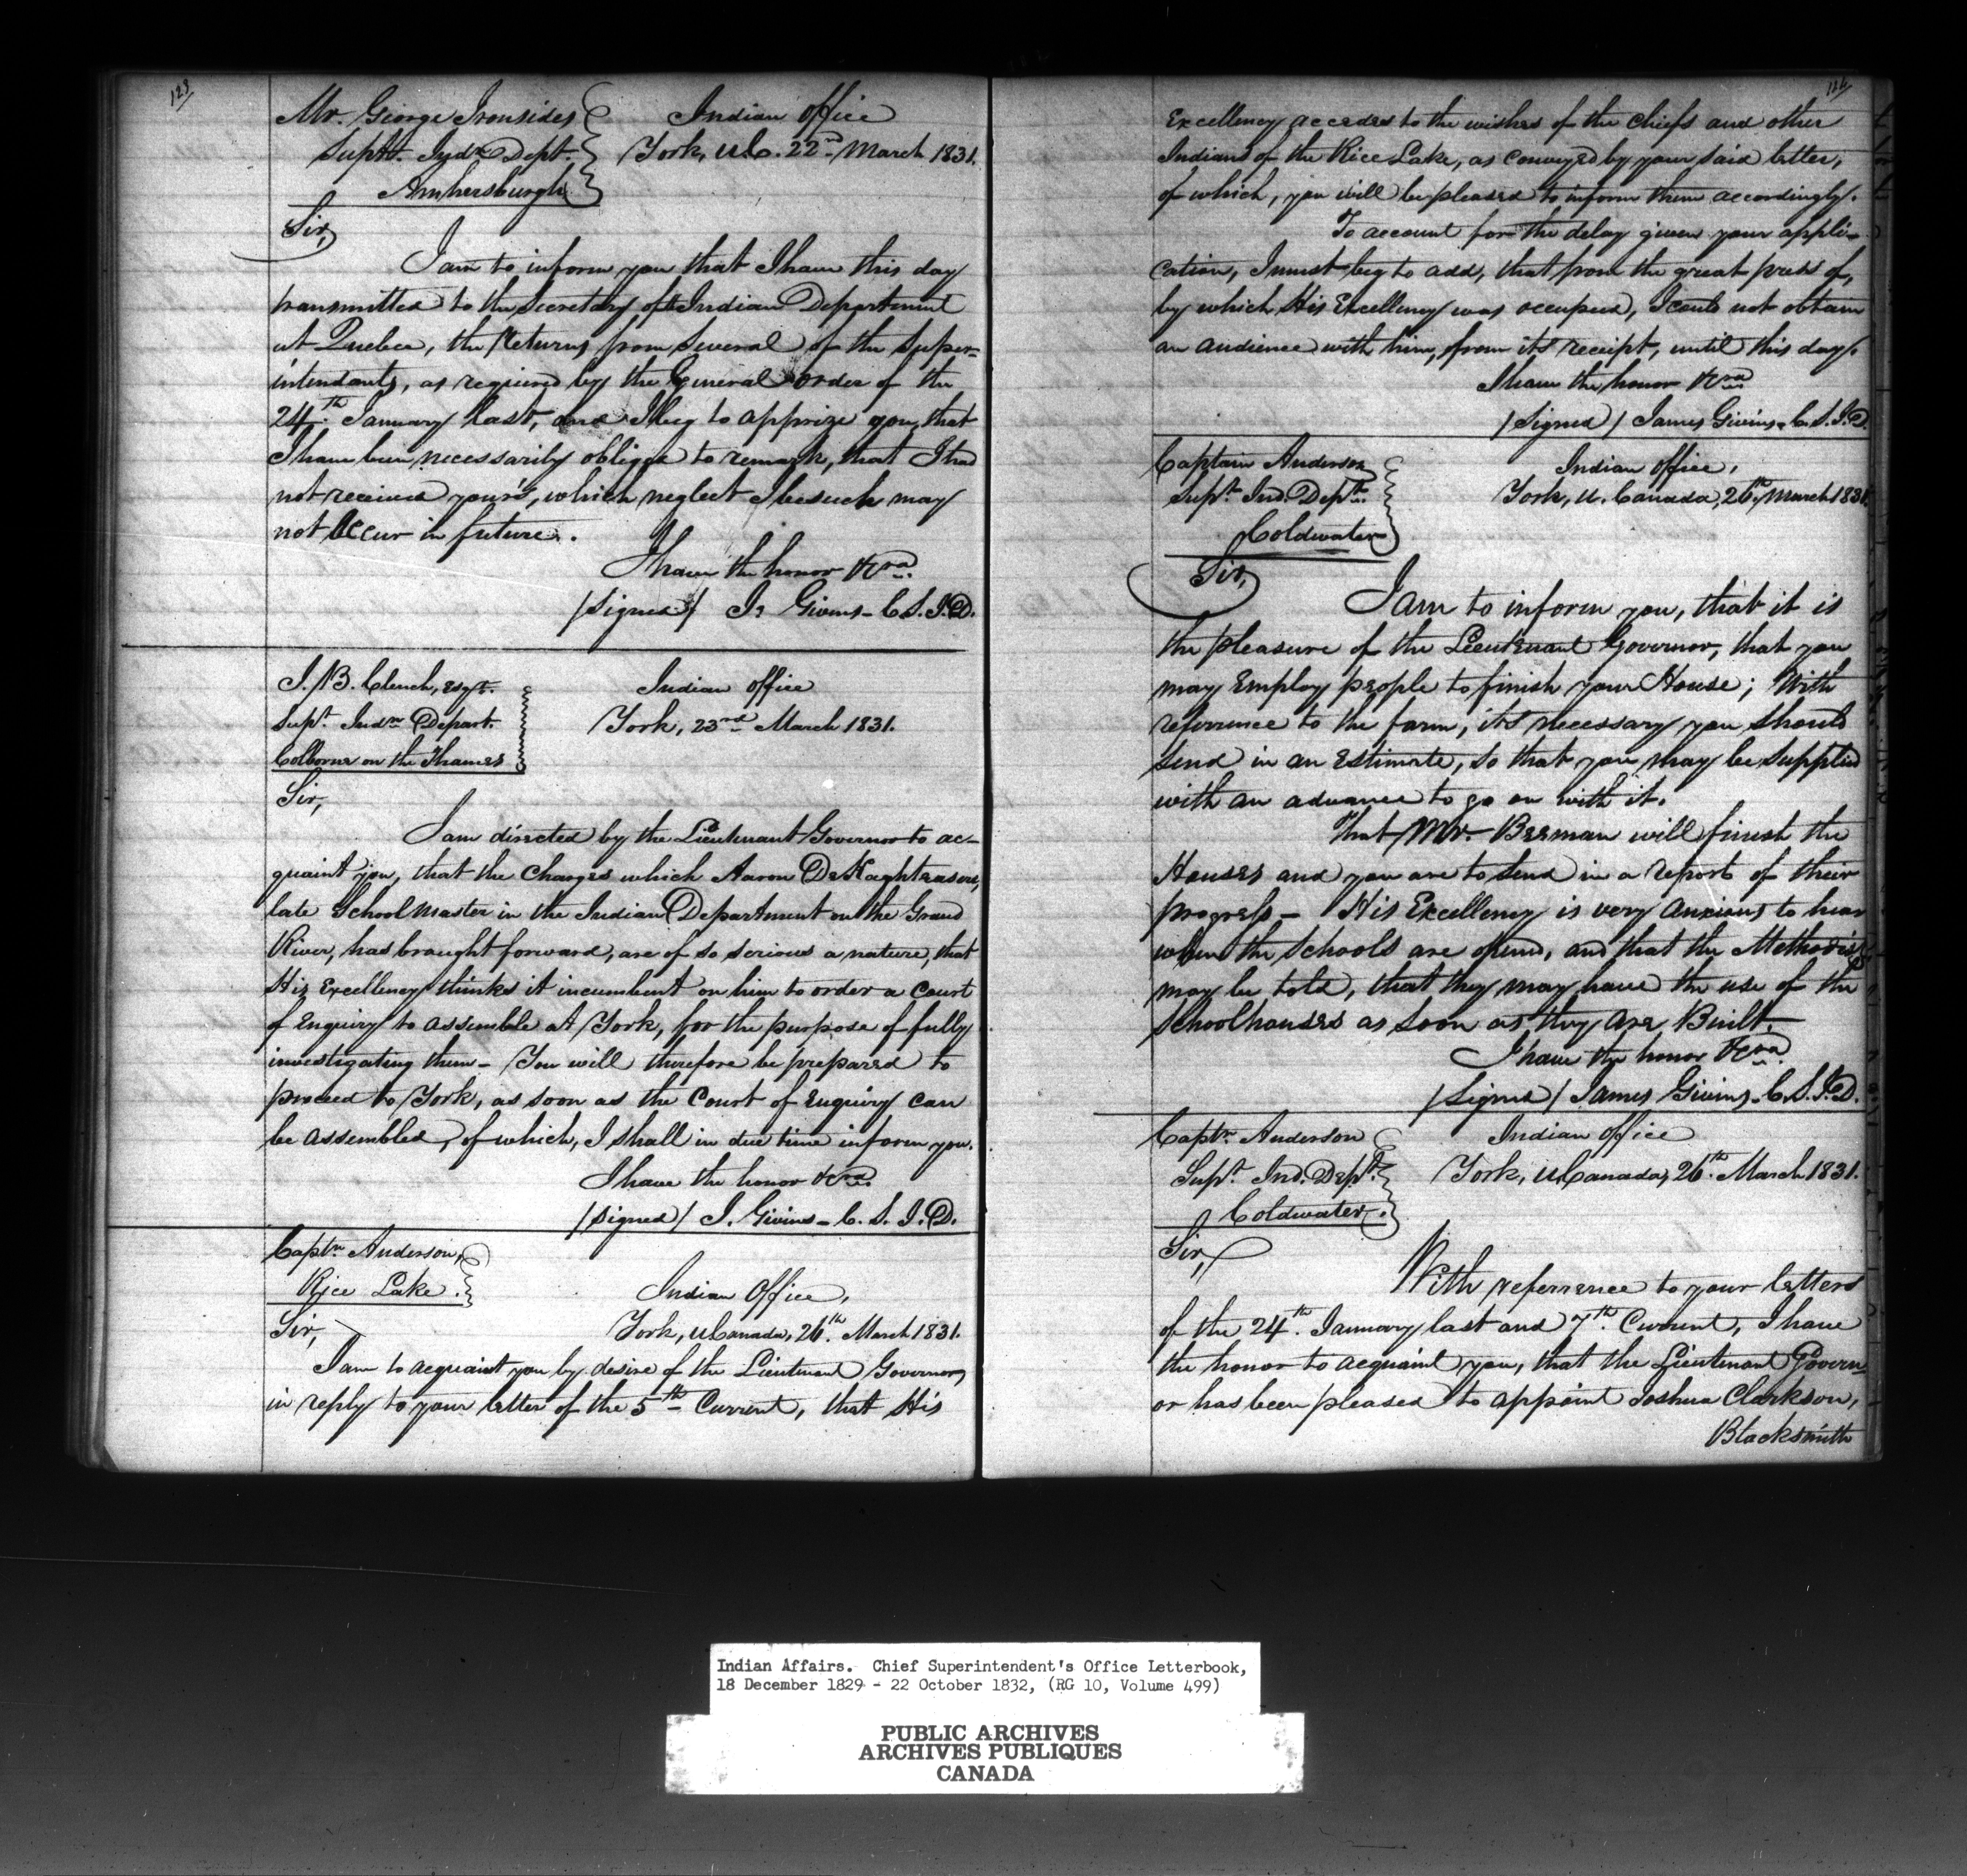 123
Mr. George Ironsides
Supt. Indn Dept.
Amhersburgh
Indian Office
York, U.C. 22nd March 1831.
Sir,
I am to inform you that I have this day
transmitted to the Secretary of the Indian Department
at Quebec, the Returns from Several of the Super-
intendants, as required by the General order of the
24th January last, and I beg to apprize you, that
I have been necessarily obliged to remark, that I had
not received your's, which neglect I beseech may
not Occur in future.
I have the honor &cra
/Signed/ Js Givins - C.S.I.D.
J. B. Clench, Esqr.
Supt Indn Depart.
Colborne on the Thames
Indian Office
York, 23rd March 1831.
Sir,
I am directed by the Lieutenant Governor to ac-
quaint you, that the Charges which Aaron
late School Master in the Indian Department on the Grand
River, has brought forward, are of so serious a nature, that
His Excellency thinks it incumbent on him to order a Court
of Enquiry to assemble at York, for the purpose of fully
investigating them - You will therefore be prepared to
proceed to York, as soon as the Court of Enquiry can
be assembled, of which, I shall in due time inform you.
I have the honor &cra
/Signed/ J. Givins - C. S. I. D.
Captn Anderson,
Rice Lake.
Indian Office,
York, U Canada, 26th March 1831.
Sir,
I am to acquaint you by desire of the Lieutenant Governor,
in reply to your letter of the 5th Current, that His
124
Excellency accedes to the wishes of the Chiefs and other
Indians of the Rice Lake, as conveyed by your said letter,
of which, you will be pleased to inform them accordingly.
To account for the delay given your appli-
cation, I must beg to add, that from the great press of,
by which His Excellency was occupied, I could not obtain
an audience with him, from its receipt, until this day.
I have the honor &cra
/Signed/ James Givins - C.S.I.D.
Captain Anderson
Supt. Ind. Dept.
Coldwater
Indian Office,
York, U. Canada, 26th March 1831.
Sir,
I am to inform you, that it is
the pleasure of the Lieutenant Governor, that you
may Employ people to finish your House; With
referrence to the farm, its necessary you should
send in an Estimate, so that you may be supplied
with an advance to go on with it.
That Mr. Beeman will finish the
Houses and you are to send in a report of their
progress - His Excellency is very anxious to hear
when the Schools are opened, and that the Methodists
may be told, that they may have the use of the
Schoolhouses as soon as they are Built.
I have the honor &cra
/Signed/ James Givins - C.S.I.D.
Captn Anderson
Supt. Ind. Dept.
Coldwater.
Indian Office
York, U Canada, 26th March 1831.
Sir,
With referrence to your letters
of the 24th January last and 7th Current, I have
the honor to acquaint you, that the Lieutenant Govern-
or has been pleased to appoint Joshua Clarkson,
Blacksmith
Indian Affairs. Chief Superintendent's Office Letterbook,
18 December 1829 - 22 October 1832, (RG 10, Volume 499)
PUBLIC ARCHIVES
ARCHIVES PUBLIQUES
CANADA